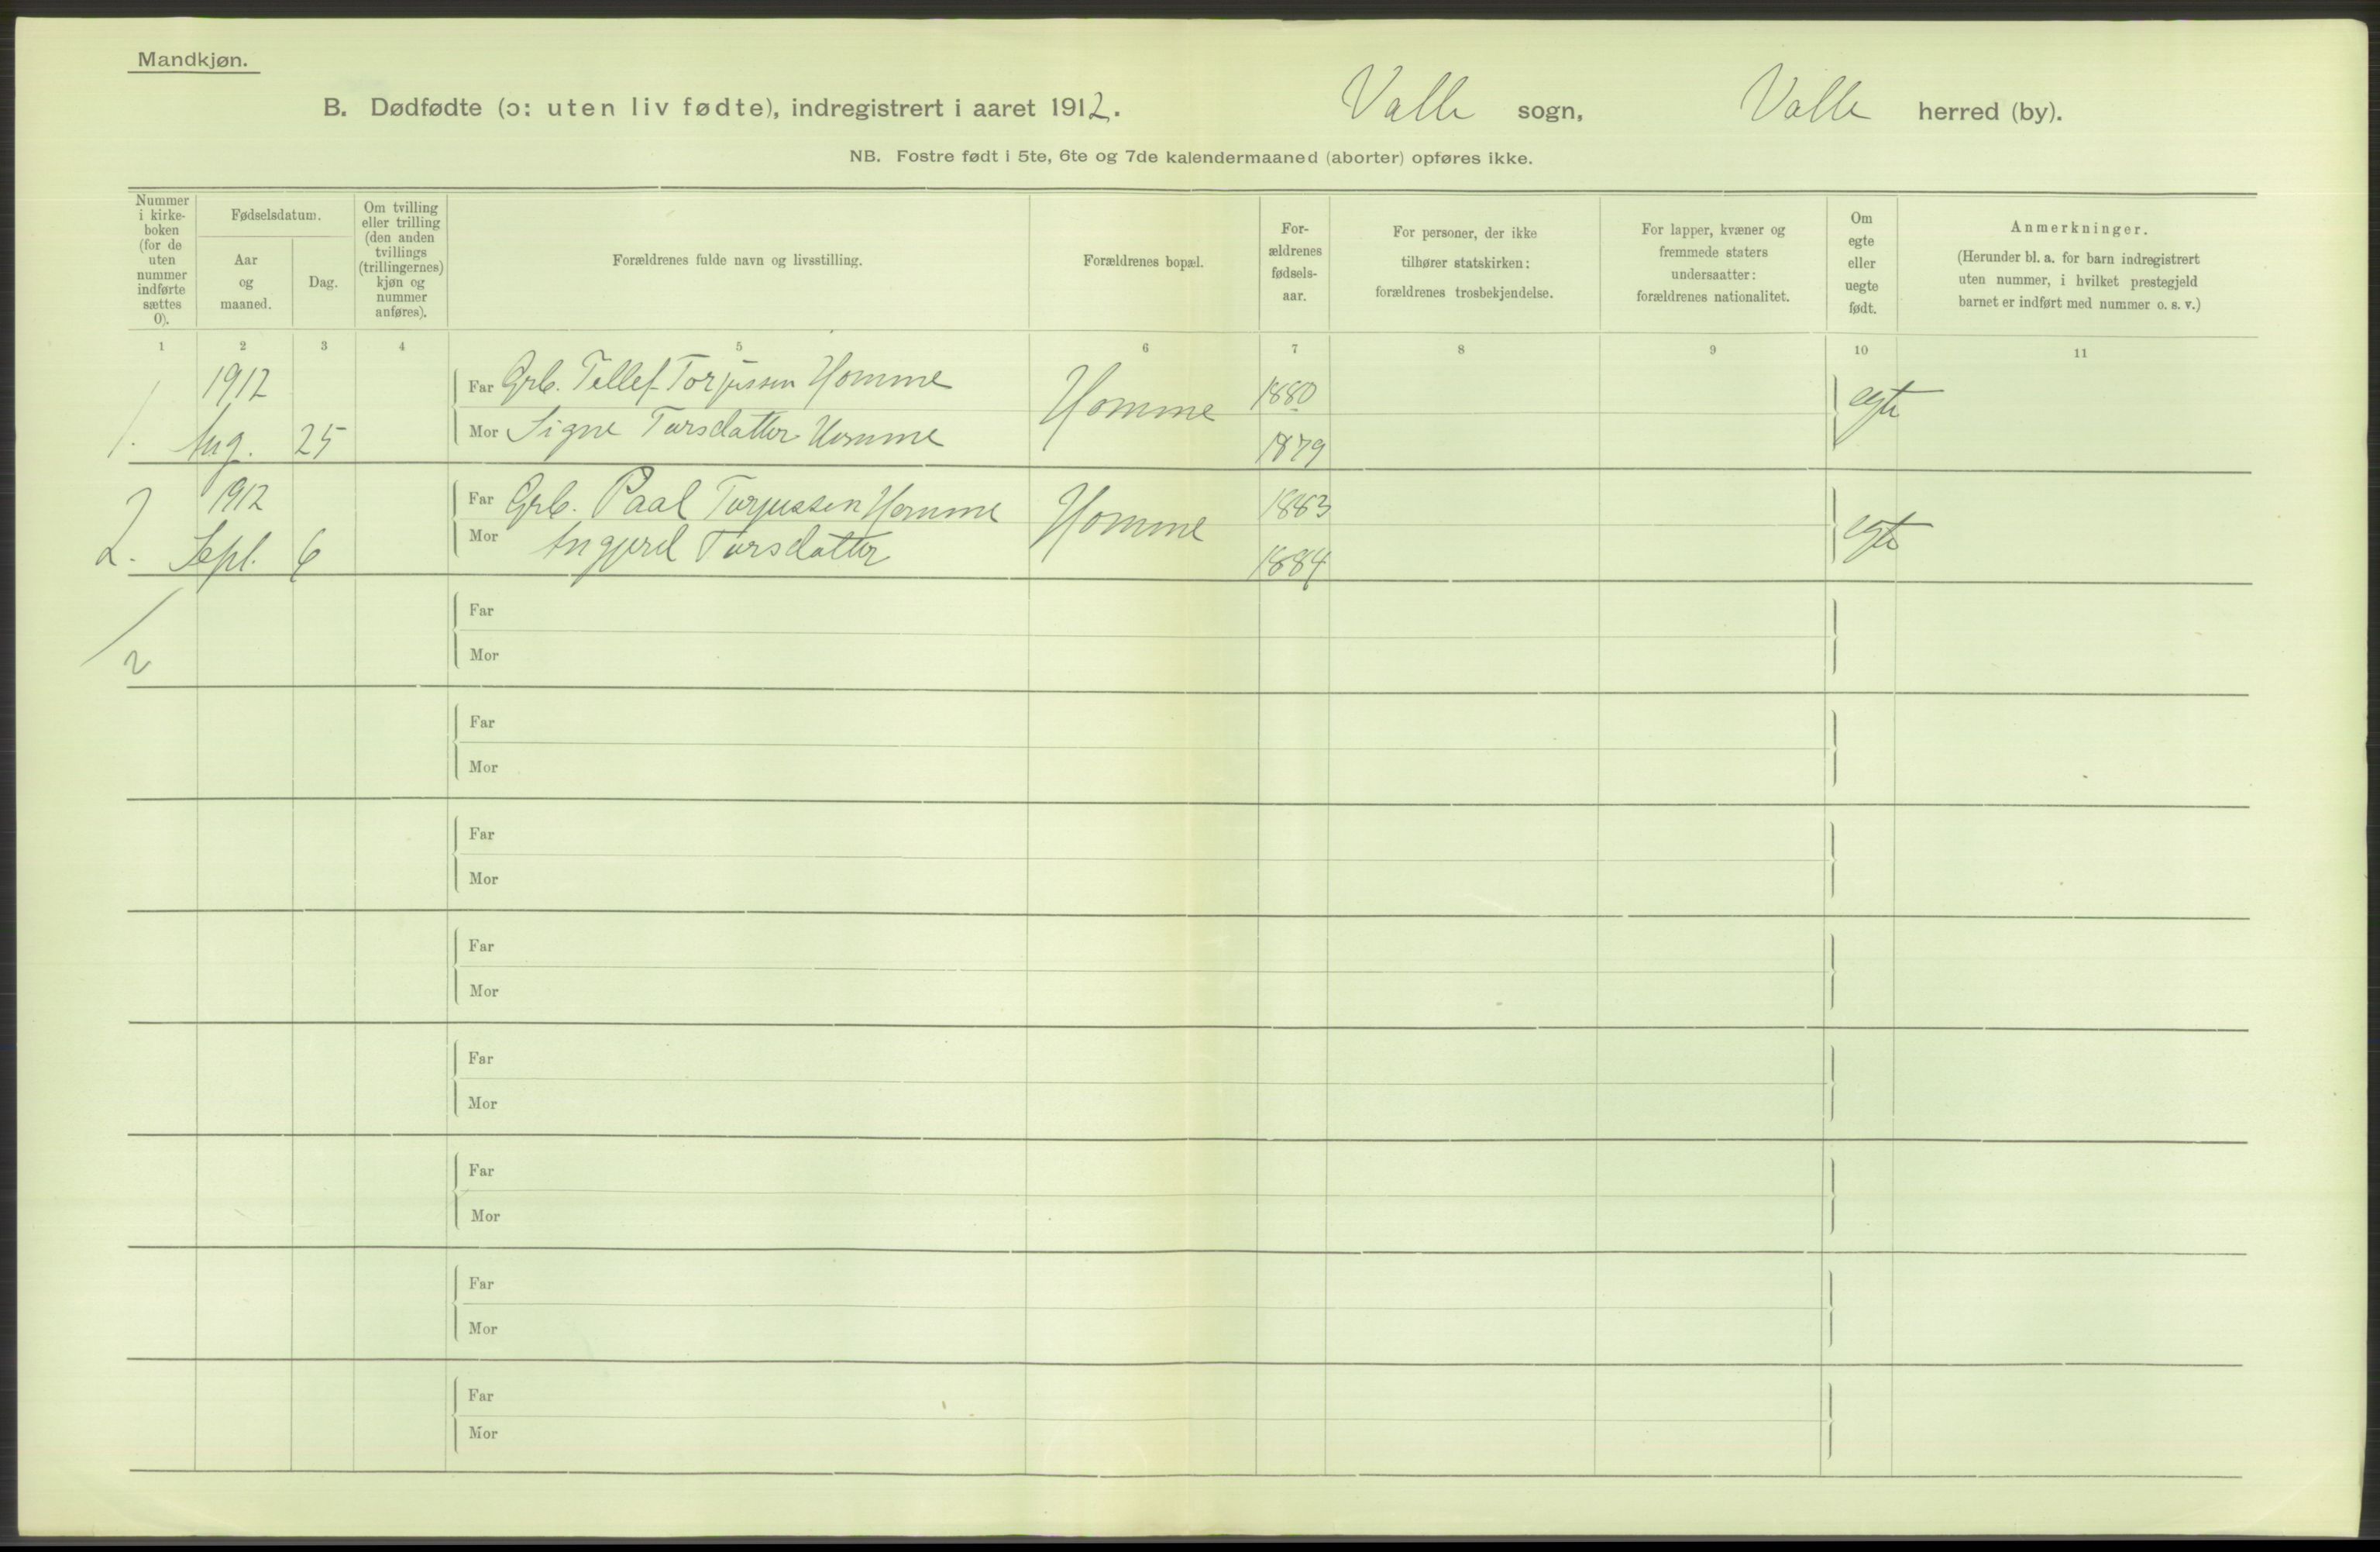 Mandkjøn.
B. Dødfødte (ɔ: uten liv fødte), indregistrert i aaret 1912. Valle sogn, Valle herred (by).
NB. Fostre født i 5te, 6te og 7de kalendermaaned (aborter) opføres ikke.
Nummer
i kirke-
boken
(for de
uten
nummer
indførte
sættes
0).
Fødselsdatum.
Aar
og
maaned.
Dag.
Om tvilling
eller trilling
(den anden
tvillings
(trillingernes)
kjøn og
nummer
anføres).
Forældrenes fulde navn og livsstilling.
Forældrenes bopæl.
For-
ældrenes
fødsels-
aar.
For personer, der ikke
tilhører statskirken:
forældrenes trosbekjendelse.
For lapper, kvæner og
fremmede staters
undersaatter:
forældrenes nationalitet.
Om
egte
eller
uegte
født.
Anmerkninger.
(Herunder bl. a. for barn indregistrert
uten nummer, i hvilket prestegjeld
barnet er indført med nummer o. s. v.)
1 2 3 4 5 6 7 8 9 10 11
1912 Far Grb. Tellef Torjussen Homme Homme 1880 egte
1. Aug. 25 Mor Signe Tarsdatter Homme 1879
1912 Far Grb. Paal Torjussen Homme Homme 1883 egte
2. Sept. 6 Mor Angjerd Tarsdatter 1884
Far
2 Mor
Far
Mor
Far
Mor
Far
Mor
Far
Mor
Far
Mor
Far
Mor
Far
Mor